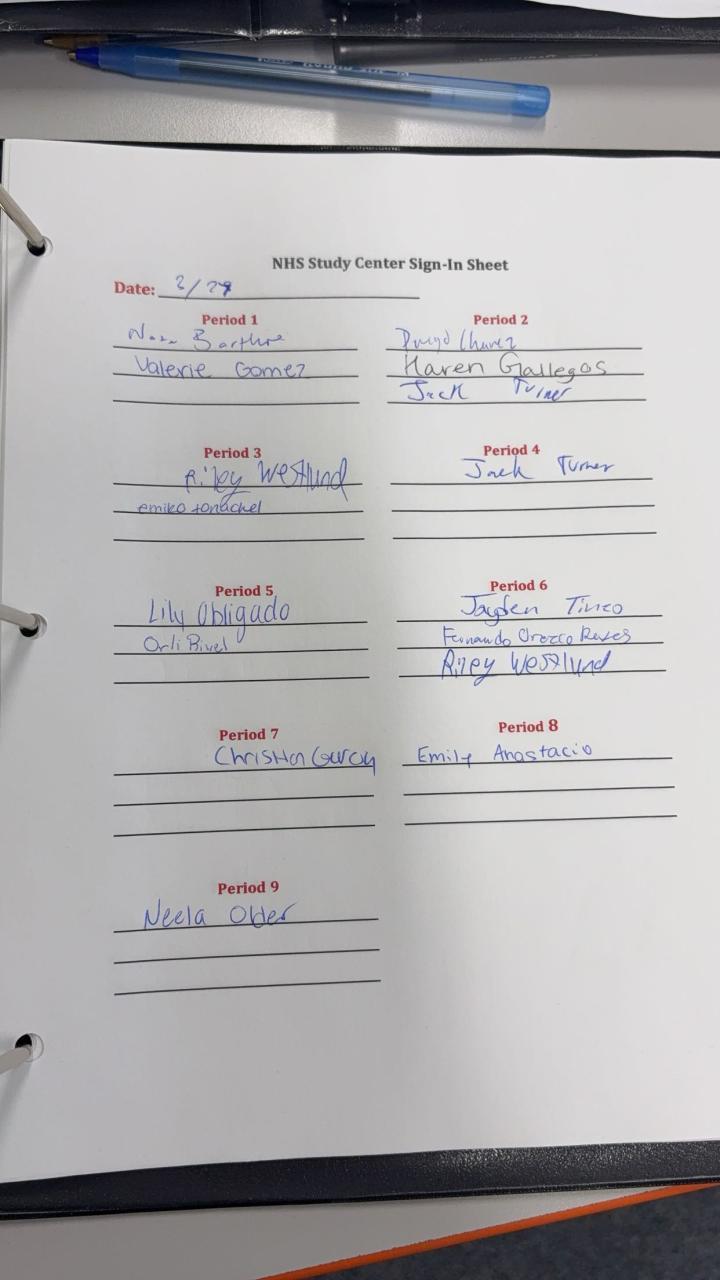 NHS Study Center Sign-In Sheet
Date:
Period 1
Valerie Gomez
Period 2
Karen Gallegos
Jack Turner
Period 3
Riley Westlund
emiko tonachel
Period 4
Jack Turner
Period 5
Lily Obligado
Orli
Period 6
Jayden Tineo
Fernando Orozco Reyes
Riley Westlund
Period 7
Christian
Period 8
Emily Anastacio
Period 9
Neela